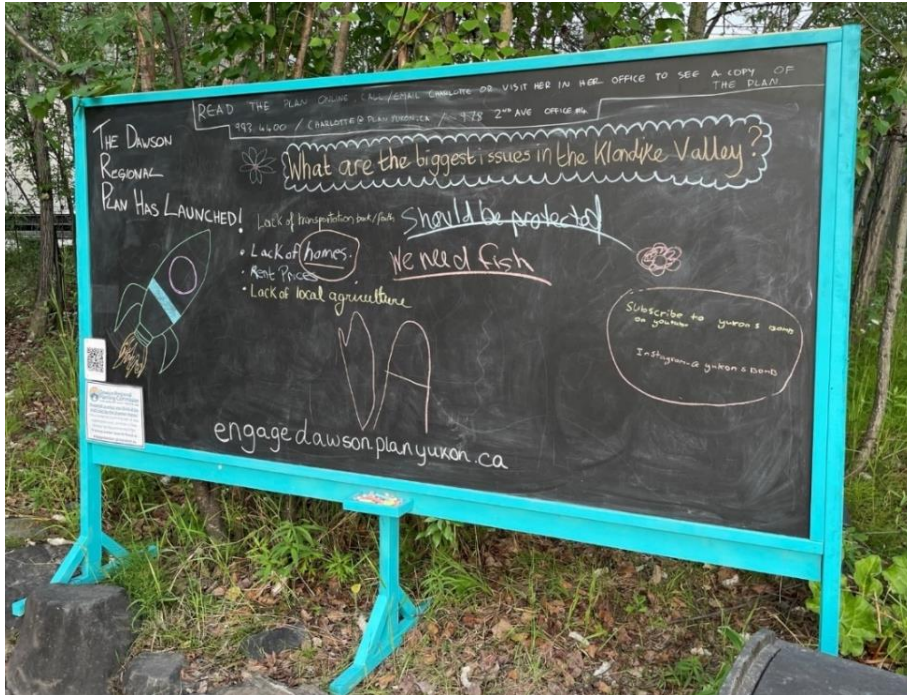 READ THE PLAN ONLINE, CALL/EMAIL CHARLOTTE OR VISIT HER IN HER OFFICE TO SEE A COPY OF
THE PLAN
993.4400 / CHARLOTTE@PLANYUKON.CA / 978 2ND AVE OFFICE #4.
THE DAWSON
REGIONAL
PLAN HAS LAUNCHED!
What are the biggest issues in the Klondike Valley?
Lack of transportation back/forth
Should be protected
• Lack of homes.
• Rent Prices
• Lack of local agriculture
We need fish
Subscribe to yukons
on youtube
Instagram@yukons
engagedawson.planyukon.ca